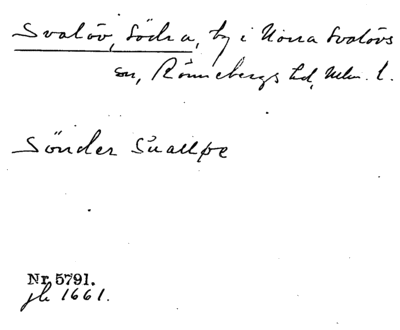 Svalöv, Södra, by i Norra Svalövs
sn, Rönnebergs hd, Mlm. l.
Sönder Sualløe
Nr. 5791.
jb 1661.